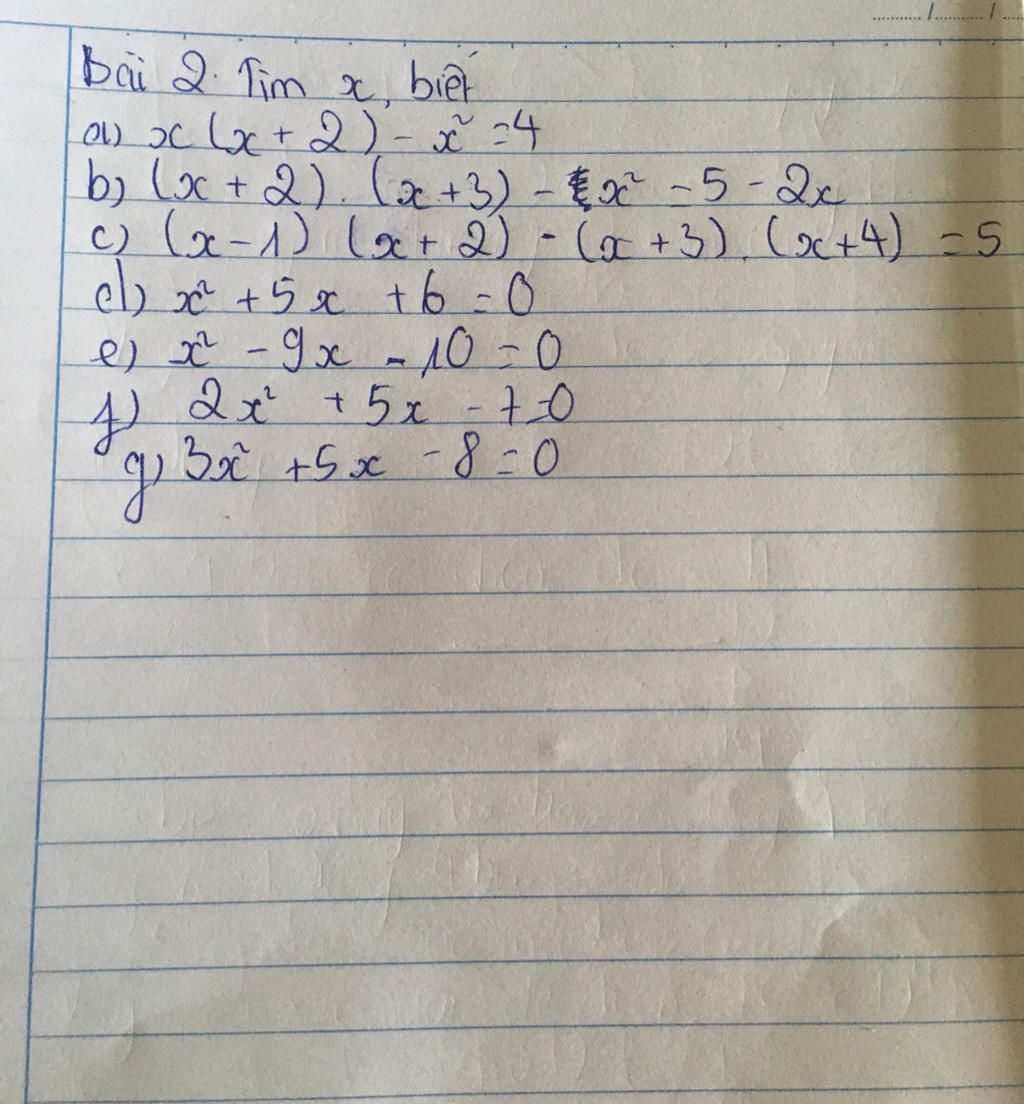 Bài 2. Tìm x, biết
a) x(x + 2) - x² = 4
b) (x + 2). (x + 3) - x² = 5 - 2x
c) (x - 1) (x + 2) - (x + 3). (x + 4) = 5
d) x² + 5x + 6 = 0
e) x² - 9x - 10 = 0
f) 2x² + 5x - 7 = 0
g) 3x² + 5x - 8 = 0